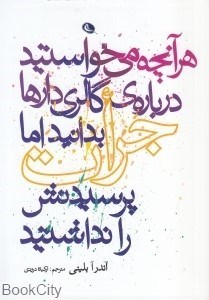 هر آنچه می‌خواستید
درباره‌ی گالری‌دارها
بدانید اما
جرأت
پرسیدنش
را نداشتید
آندرآ بلینی مترجم:
BookCity